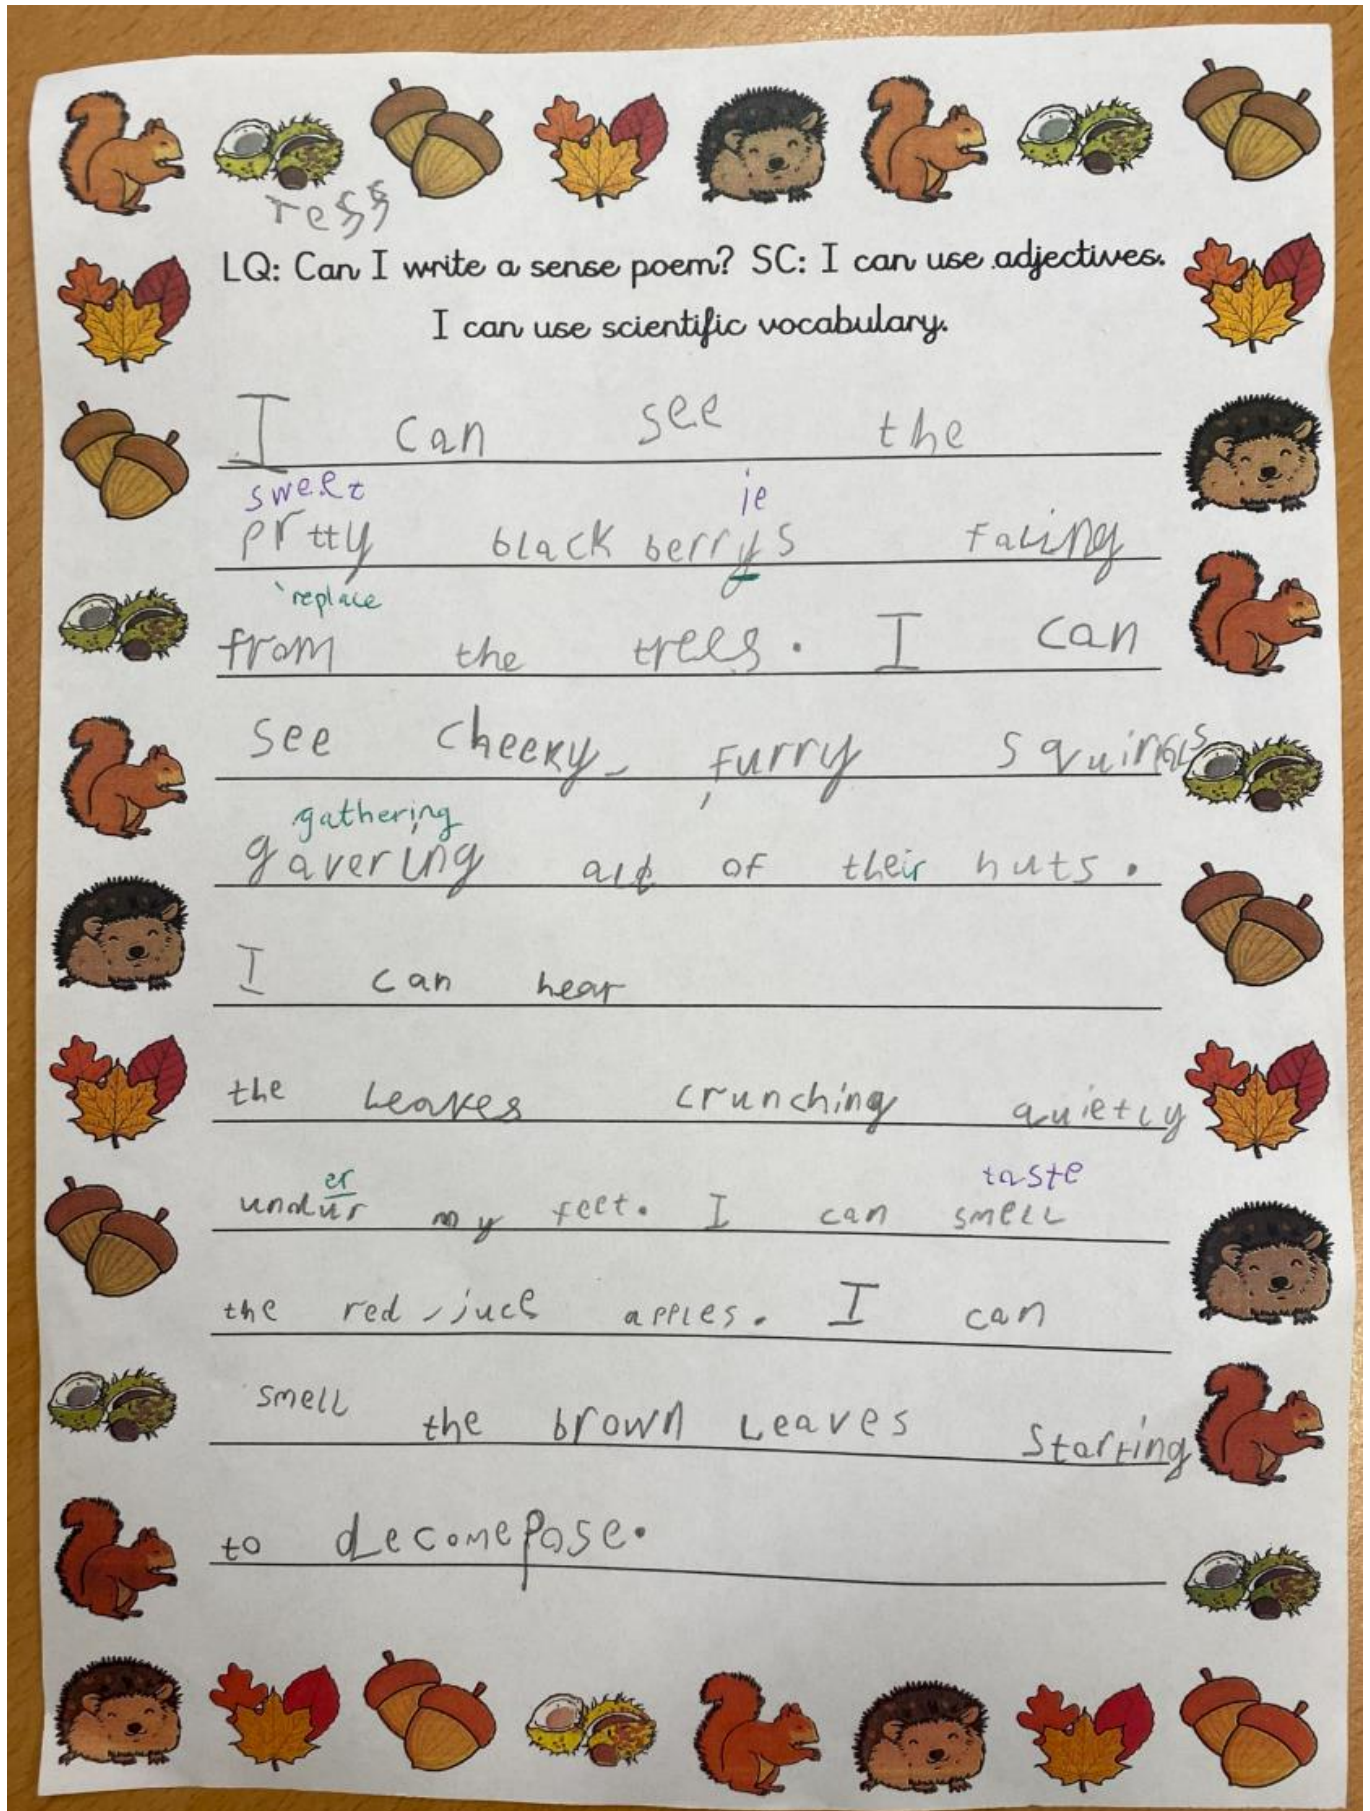 ress
LQ: Can I write a sense poem? SC: I can use adjectives.
I can use scientific vocabulary.
I can see the
sweet ie
prtty black berrys faling
replace
from the trees. I can
see cheeky, furry squirrels
gathering
gavering all of their nuts.
I can hear
the leaves crunching quietly
er taste
undur my feet. I can smell
the red, juce apples. I can
smell the brown leaves starting
to decomepose.